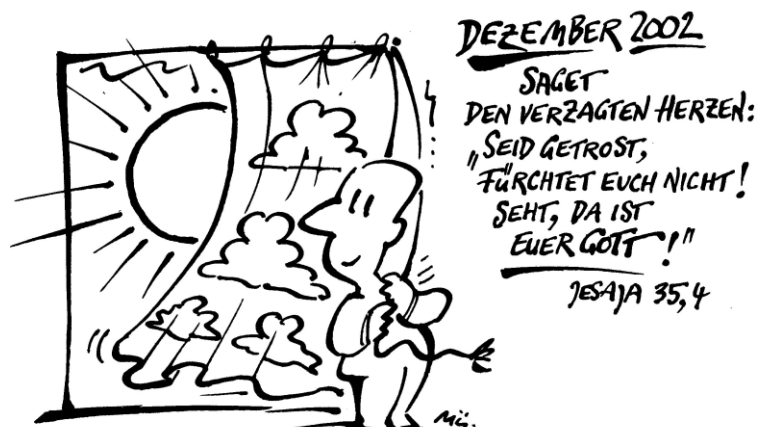 DEZEMBER 2002
SAGET
DEN VERZAGTEN HERZEN:
„SEID GETROST,
FÜRCHTET EUCH NICHT!
SEHT, DA IST
EUER GOTT!"
JESAJA 35,4
Mü.